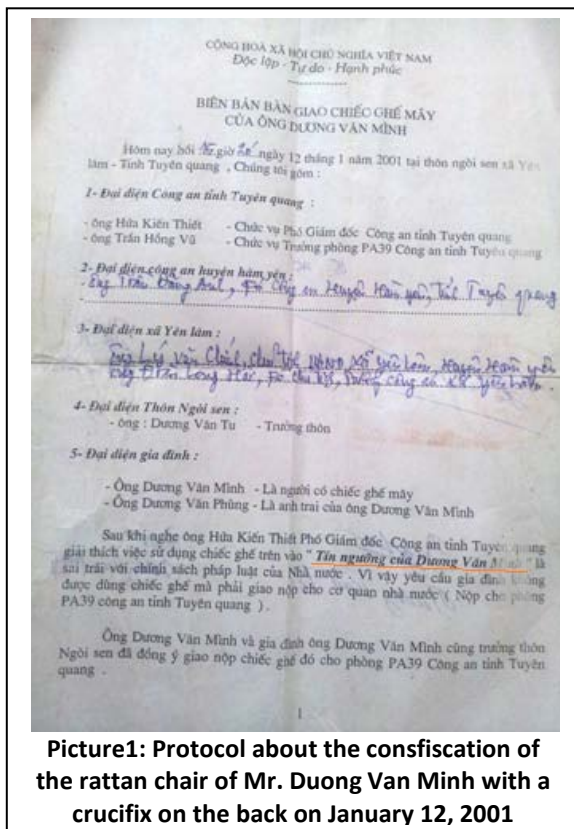 CỘNG HOÀ XÃ HỘI CHỦ NGHĨA VIỆT NAM
Độc lập - Tự do - Hạnh phúc
BIÊN BẢN BÀN GIAO CHIẾC GHẾ MÂY
CỦA ÔNG DƯƠNG VĂN MÌNH
Hôm nay hồi giờ ngày 12 tháng 1 năm 2001 tại thôn ngòi sen xã Yên
lâm - Tỉnh Tuyên quang , Chúng tôi gồm :
1- Đại diện Công an tỉnh Tuyên quang :
- ông Hứa Kiến Thiết - Chức vụ Phó Giám đốc Công an tỉnh Tuyên quang
- ông Trần Hồng Vũ - Chức vụ Trưởng phòng PA39 Công an tỉnh Tuyên quang
2- Đại diện công an huyện hàm yên :
- Ông Trần Công an Huyện Hàm yên, Tuyên quang
3- Đại diện xã Yên lâm :
Ông Lý Văn xã yên lâm, Huyện Hàm yên
ông Trần Long công an xã yên lâm.
4- Đại diện Thôn Ngòi sen :
- ông : Dương Văn Tu - Trưởng thôn
5- Đại diện gia đình :
- Ông Dương Văn Mình - Là người có chiếc ghế mây
- Ông Dương Văn Phùng - Là anh trai của ông Dương Văn Mình
Sau khi nghe ông Hứa Kiến Thiết Phó Giám đốc Công an tỉnh Tuyên quang
giải thích việc sử dụng chiếc ghế trên vào " Tín ngưỡng của Dương Văn Mình " là
sai trái với chính sách pháp luật của Nhà nước . Vì vậy yêu cầu gia đình không
được dùng chiếc ghế mà phải giao nộp cho cơ quan nhà nước ( Nộp cho phòng
PA39 công an tỉnh Tuyên quang ).
Ông Dương Văn Mình và gia đình ông Dương Văn Mình cũng trưởng thôn
Ngòi sen đã đồng ý giao nộp chiếc ghế đó cho phòng PA39 Công an tỉnh Tuyên
quang .
1
Picture1: Protocol about the consfiscation of
the rattan chair of Mr. Duong Van Minh with a
crucifix on the back on January 12, 2001